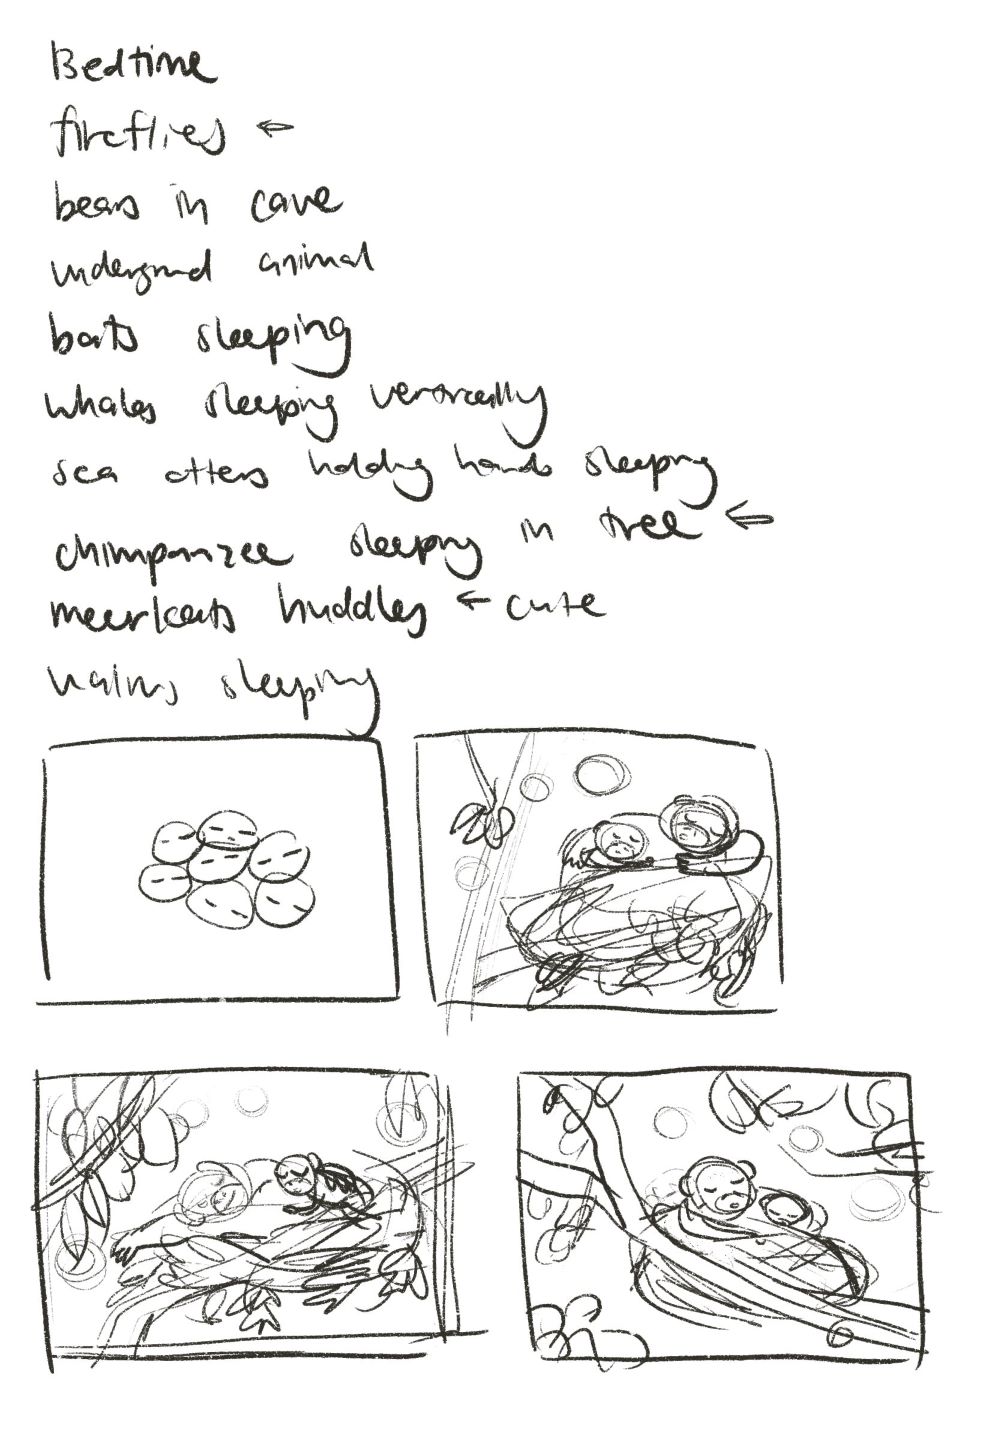 Bedtime
fireflies ←
bears in cave
underground animal
bats sleeping
whales sleeping vertically
sea otters holding hands sleeping
chimpanzee sleeping in tree ←
meerkats huddles ← cute
sleeping